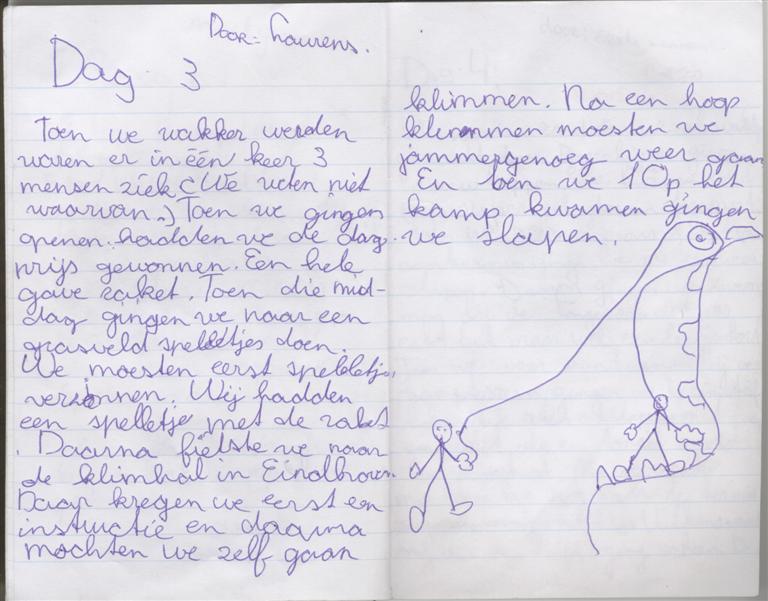 Door: Laurens.
Dag 3
Toen we wakker werden
waren er in één keer 3
mensen ziek (We weten niet
waarvan.) Toen we gingen
openen hadden we de dag
prijs gewonnen. Een hele
gave raket. Toen die mid-
dag gingen we naar een
grasveld spelletjes doen.
We moesten eerst spelletjes
verzinnen. Wij hadden
een spelletje met de raket
. Daarna fietste we naar
de klimhal in Eindhoven.
Daar kregen we eerst een
instructie en daarna
mochten we zelf gaan
klimmen. Na een hoop
klimmen moesten we
jammergenoeg weer gaan
En toen we Op het
kamp kwamen gingen
we slapen.